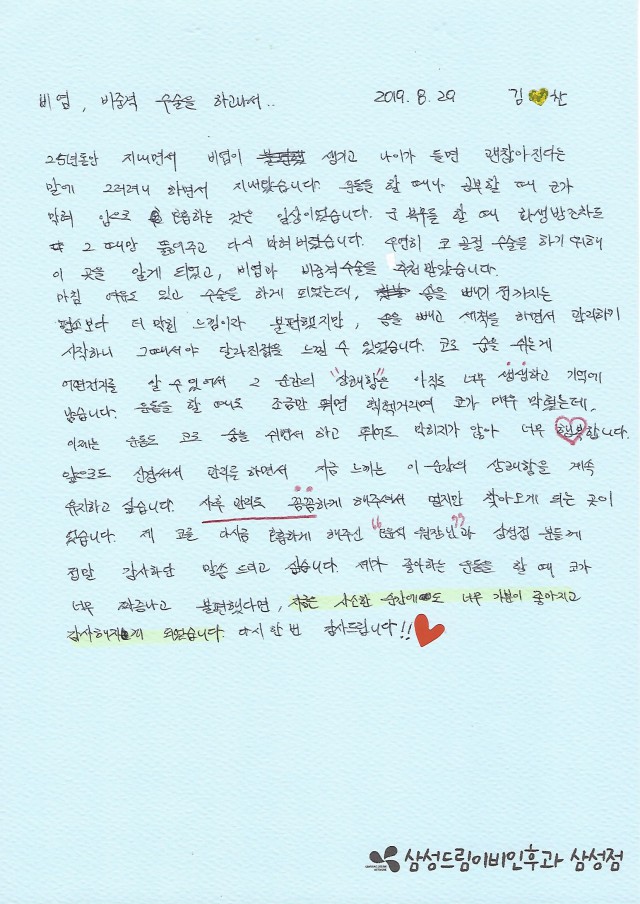 비염, 비중격 수술을 하고나서.. 2019. 8. 29 김 찬
25년동안 지내면서 비염이 생기고 나이가 들면 괜찮아진다는
말에 그러려니 하면서 지내왔습니다. 운동을 할 때나 공부할 때 코가
막혀 입으로 호흡하는 것은 일상이었습니다. 군 복무를 할 때 화생방조차도
그 때만 뚫어주고 다시 막혀버렸습니다. 우연히 코 골절 수술을 하기 위해
이 곳을 알게 되었고, 비염과 비중격수술을 추천 받았습니다.
마침 여유도 있고 수술을 하게 되었는데, 솜을 빼기 전까지는
평소보다 더 막힌 느낌이라 불편했지만, 솜을 빼고 세척을 하면서 관리하기
시작하니 그때서야 달라진점을 느낄 수 있었습니다. 코로 숨을 쉬는게
어떤건지를 알 수 있어서 그 순간의 "상쾌함"은 아직도 너무 생생하고 기억에
남습니다. 운동을 할 때도 조금만 뛰면 헉헉거리며 코가 매우 막혔는데,
이제는 운동도 코로 숨을 쉬면서 하고 뛰어도 막히지가 않아 너무 행복합니다.
앞으로도 신경써서 관리를 하면서 지금 느끼는 이 순간의 상쾌함을 계속
유지하고 싶습니다. 사후 관리도 꼼꼼하게 해주셔서 멀지만 찾아오게 되는 곳이
었습니다. 제 코를 다시금 호흡하게 해주신 " 원장님"과 삼성점 분들께
정말 감사하단 말씀 드리고 싶습니다. 제가 좋아하는 운동을 할 때 코가
너무 짜증나고 불편했다면, 지금은 사소한 순간에도 너무 기분이 좋아지고
감사해지게 되었습니다. 다시 한 번 감사드립니다!!
삼성드림이비인후과 삼성점